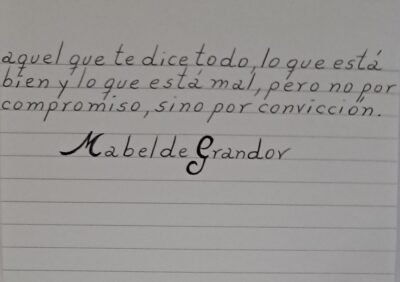 aquel que te dice todo, lo que está
bien y lo que está mal, pero no por
compromiso, sino por convicción.
Mabel de Grandov